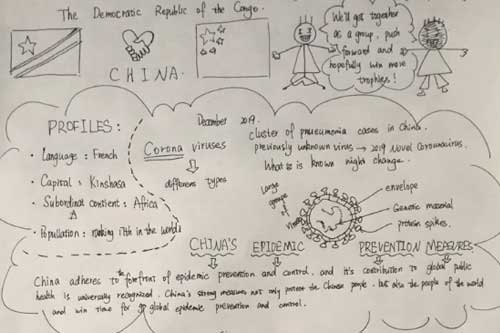 The Democratic Republic of the Congo.
CHINA.
We'll get together
as a group, push
forward and
hopefully win more
trophies!
PROFILES:
• Language: French
• Capital: Kinshasa
• Subordinat contient: Africa
• Popullation: ranking 17th in the world
December 2019.
Corona viruses
different types
cluster of pneumonia cases in China.
previously unknown virus → 2019 Novel Coronavirus.
What is known might change.
Large
groups
of
viruses
envelope
Genetic material
protein spikes.
CHINA'S EPIDEMIC PREVENTION MEASURES
China adheres to the forefront of epidemic prevention and control. and it's contribution to global public
health is universely recognized. China's strong measures not only protect the Chinese people. but also the people of the world
and win time for global epidemic prevention and control.